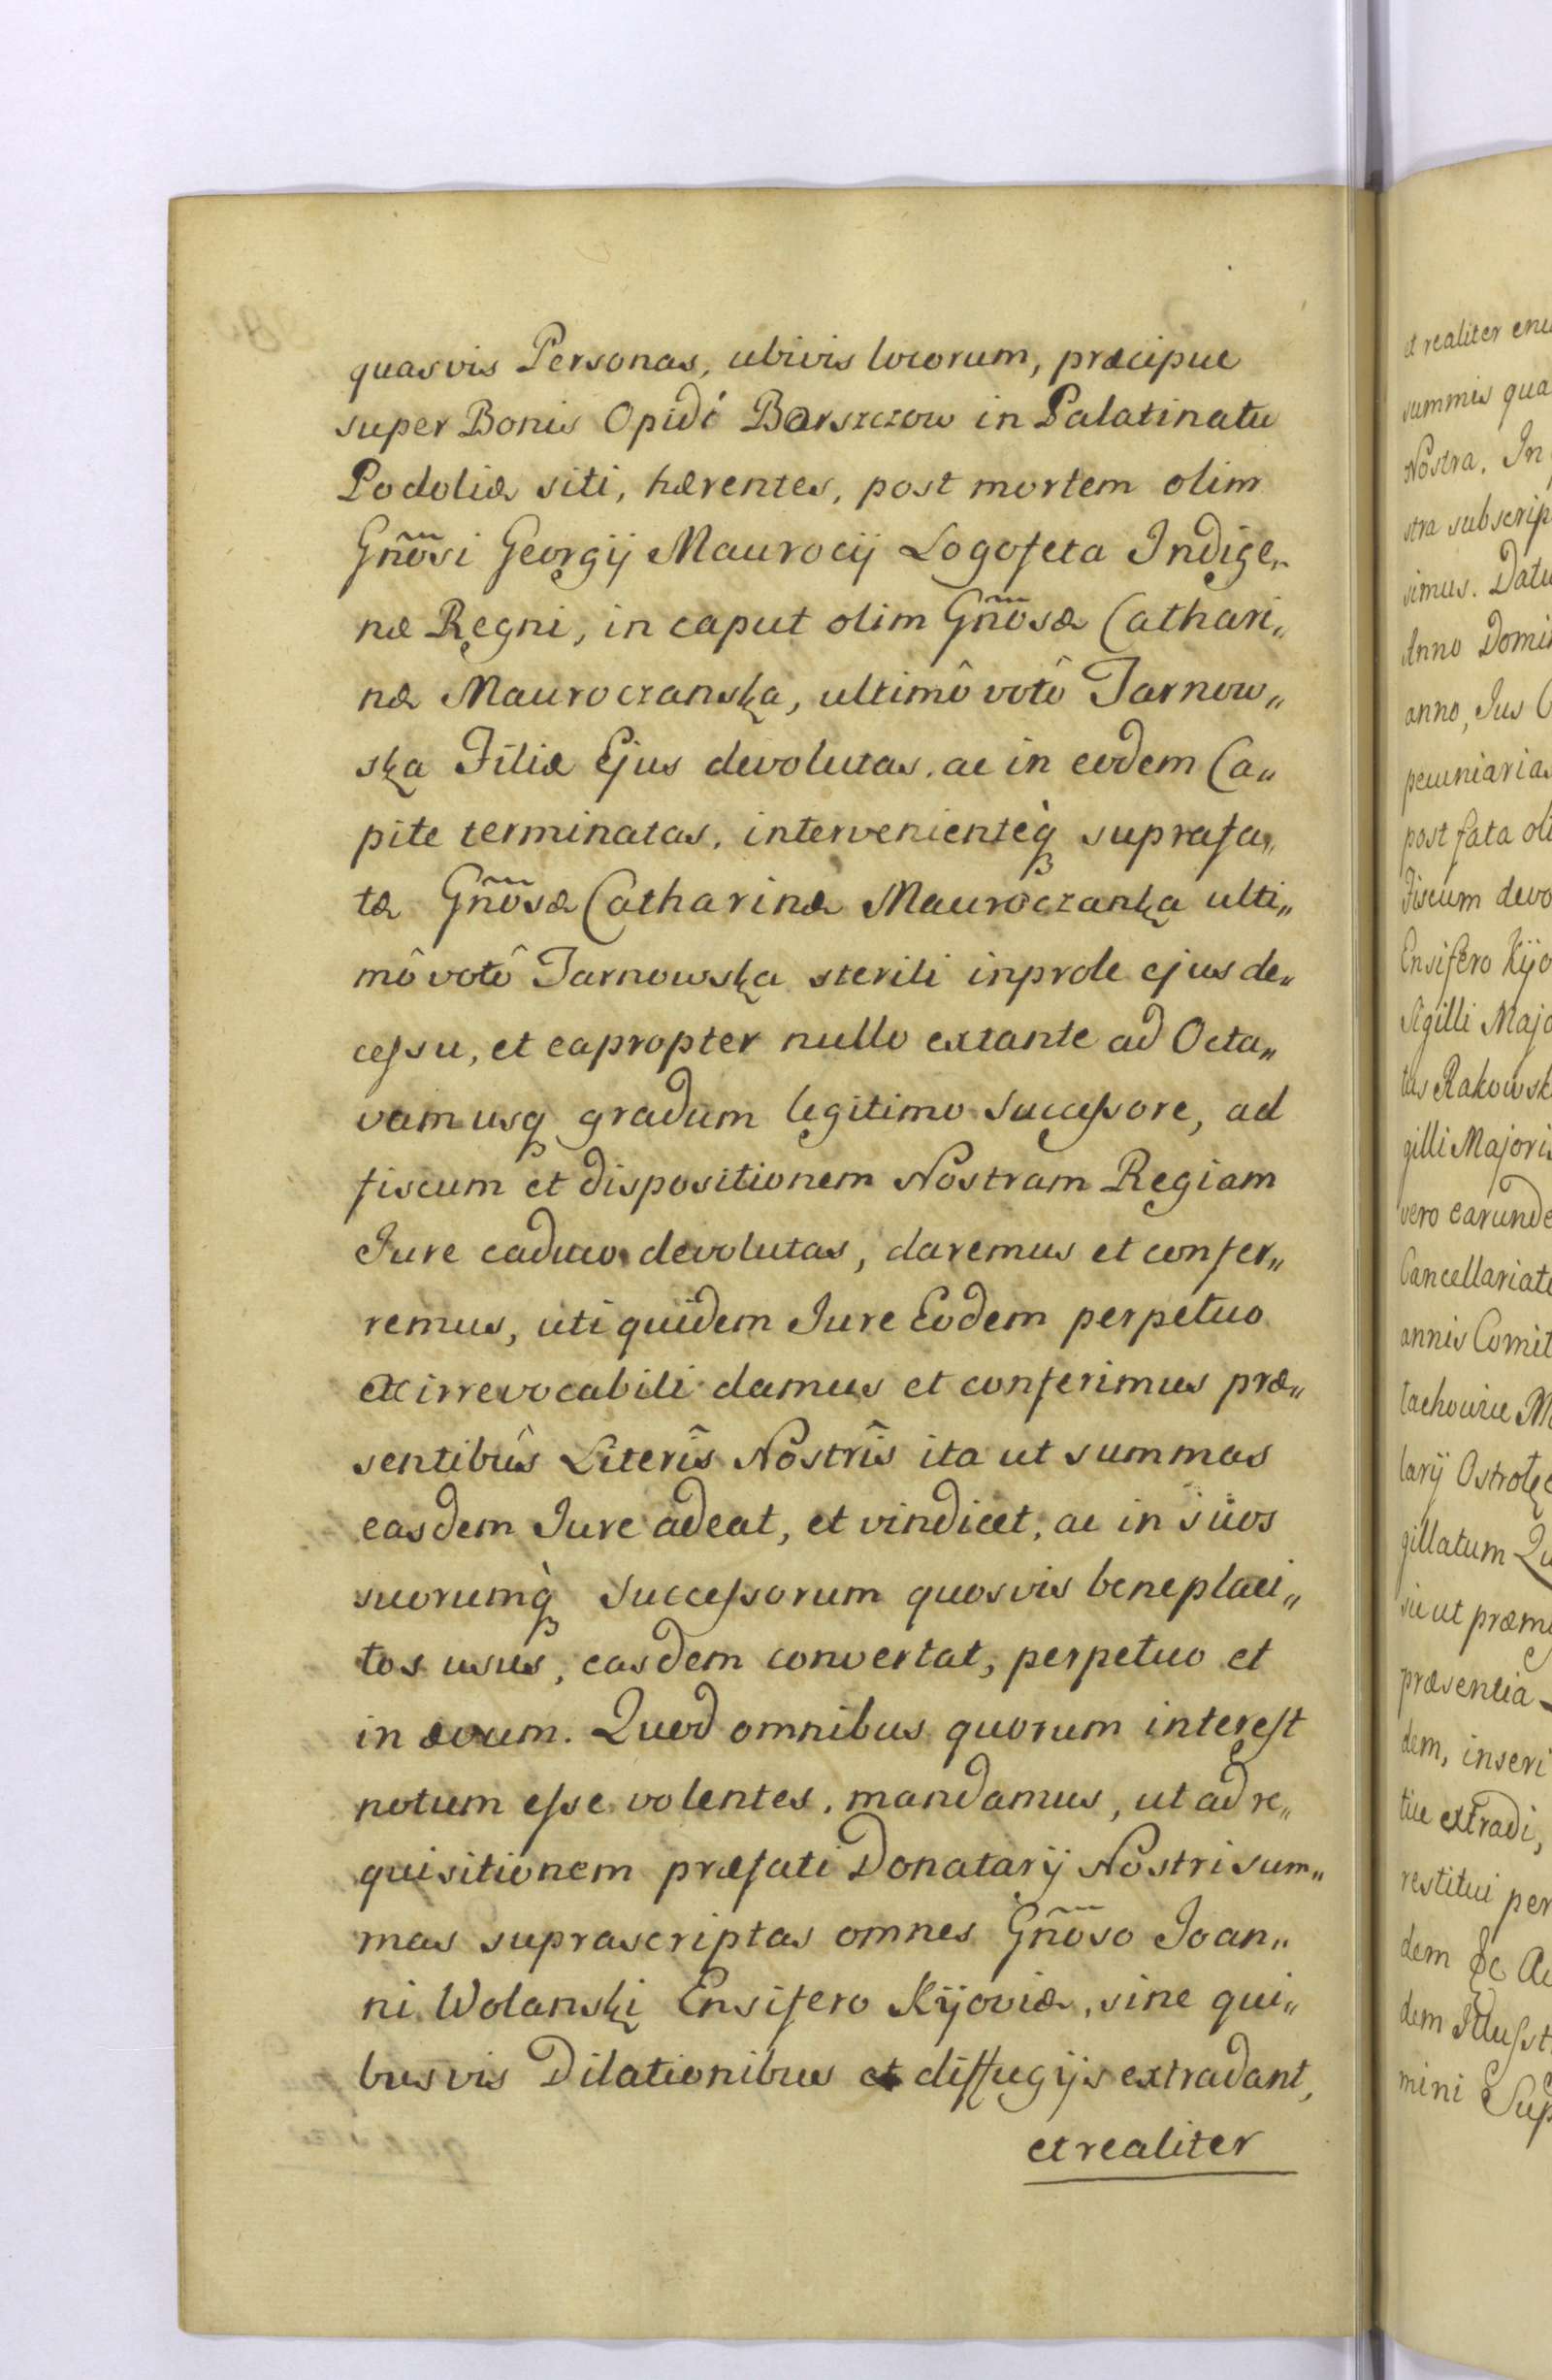 quasvis Personas, ubivis locorum, præcipue
super Bonis Opidi Barszczow in Palatinatu
Podoliæ siti, hærentes, post mortem olim
Gñosi Georgij Maurocij Logofeta Indige„
næ Regni, in caput olim Gñosæ Cathari„
næ Mauroczanska, ultimô votô Tarnow„
ska Filiæ Ejus devolutas, ac in eodem Ca„
pite terminatas, intervenienteq́ suprafa„
tæ Gñosæ Catharinæ Mauroczanka ulti„
mô votô Tarnowska sterili inprole ejus de„
cessu, et eapropter nullo extante ad Octa„
vam usq gradum legitimo Successore, ad
fiscum et dispositionem Nostram Regiam
Jure caduco devolutas, daremus et confer„
remus, uti quidem Jure Eodem perpetuo
et irrevocabili damus et conferimus præ„
sentibûs Literîs Nostrîs ita ut summas
easdem Jure adeat, et vindicet, ac in suos
suorumq̀ Successorum quosvis beneplaci„
tos usus, easdem convertat, perpetuo et
in ævum. Quod omnibus quorum interest
notum esse volentes, mandamus, ut ad re„
quisitionem præfati Donatarij Nostri sum„
mas suprascriptas omnes Gñoso Joan„
ni Wolanski Ensifero Kijoviæ, sine qui„
busvis Dilationibus et diffugijs extradant,
et realiter
et realiter
summis
Nostra. In
stra
simus.
Anno
anno, Jus
post fata
Fiscum
Ensifero
Sigilli
vero
annis
gillatum
sic ut
præsentia
dem, inseri
extradi,
restitui per
dem &c
dem